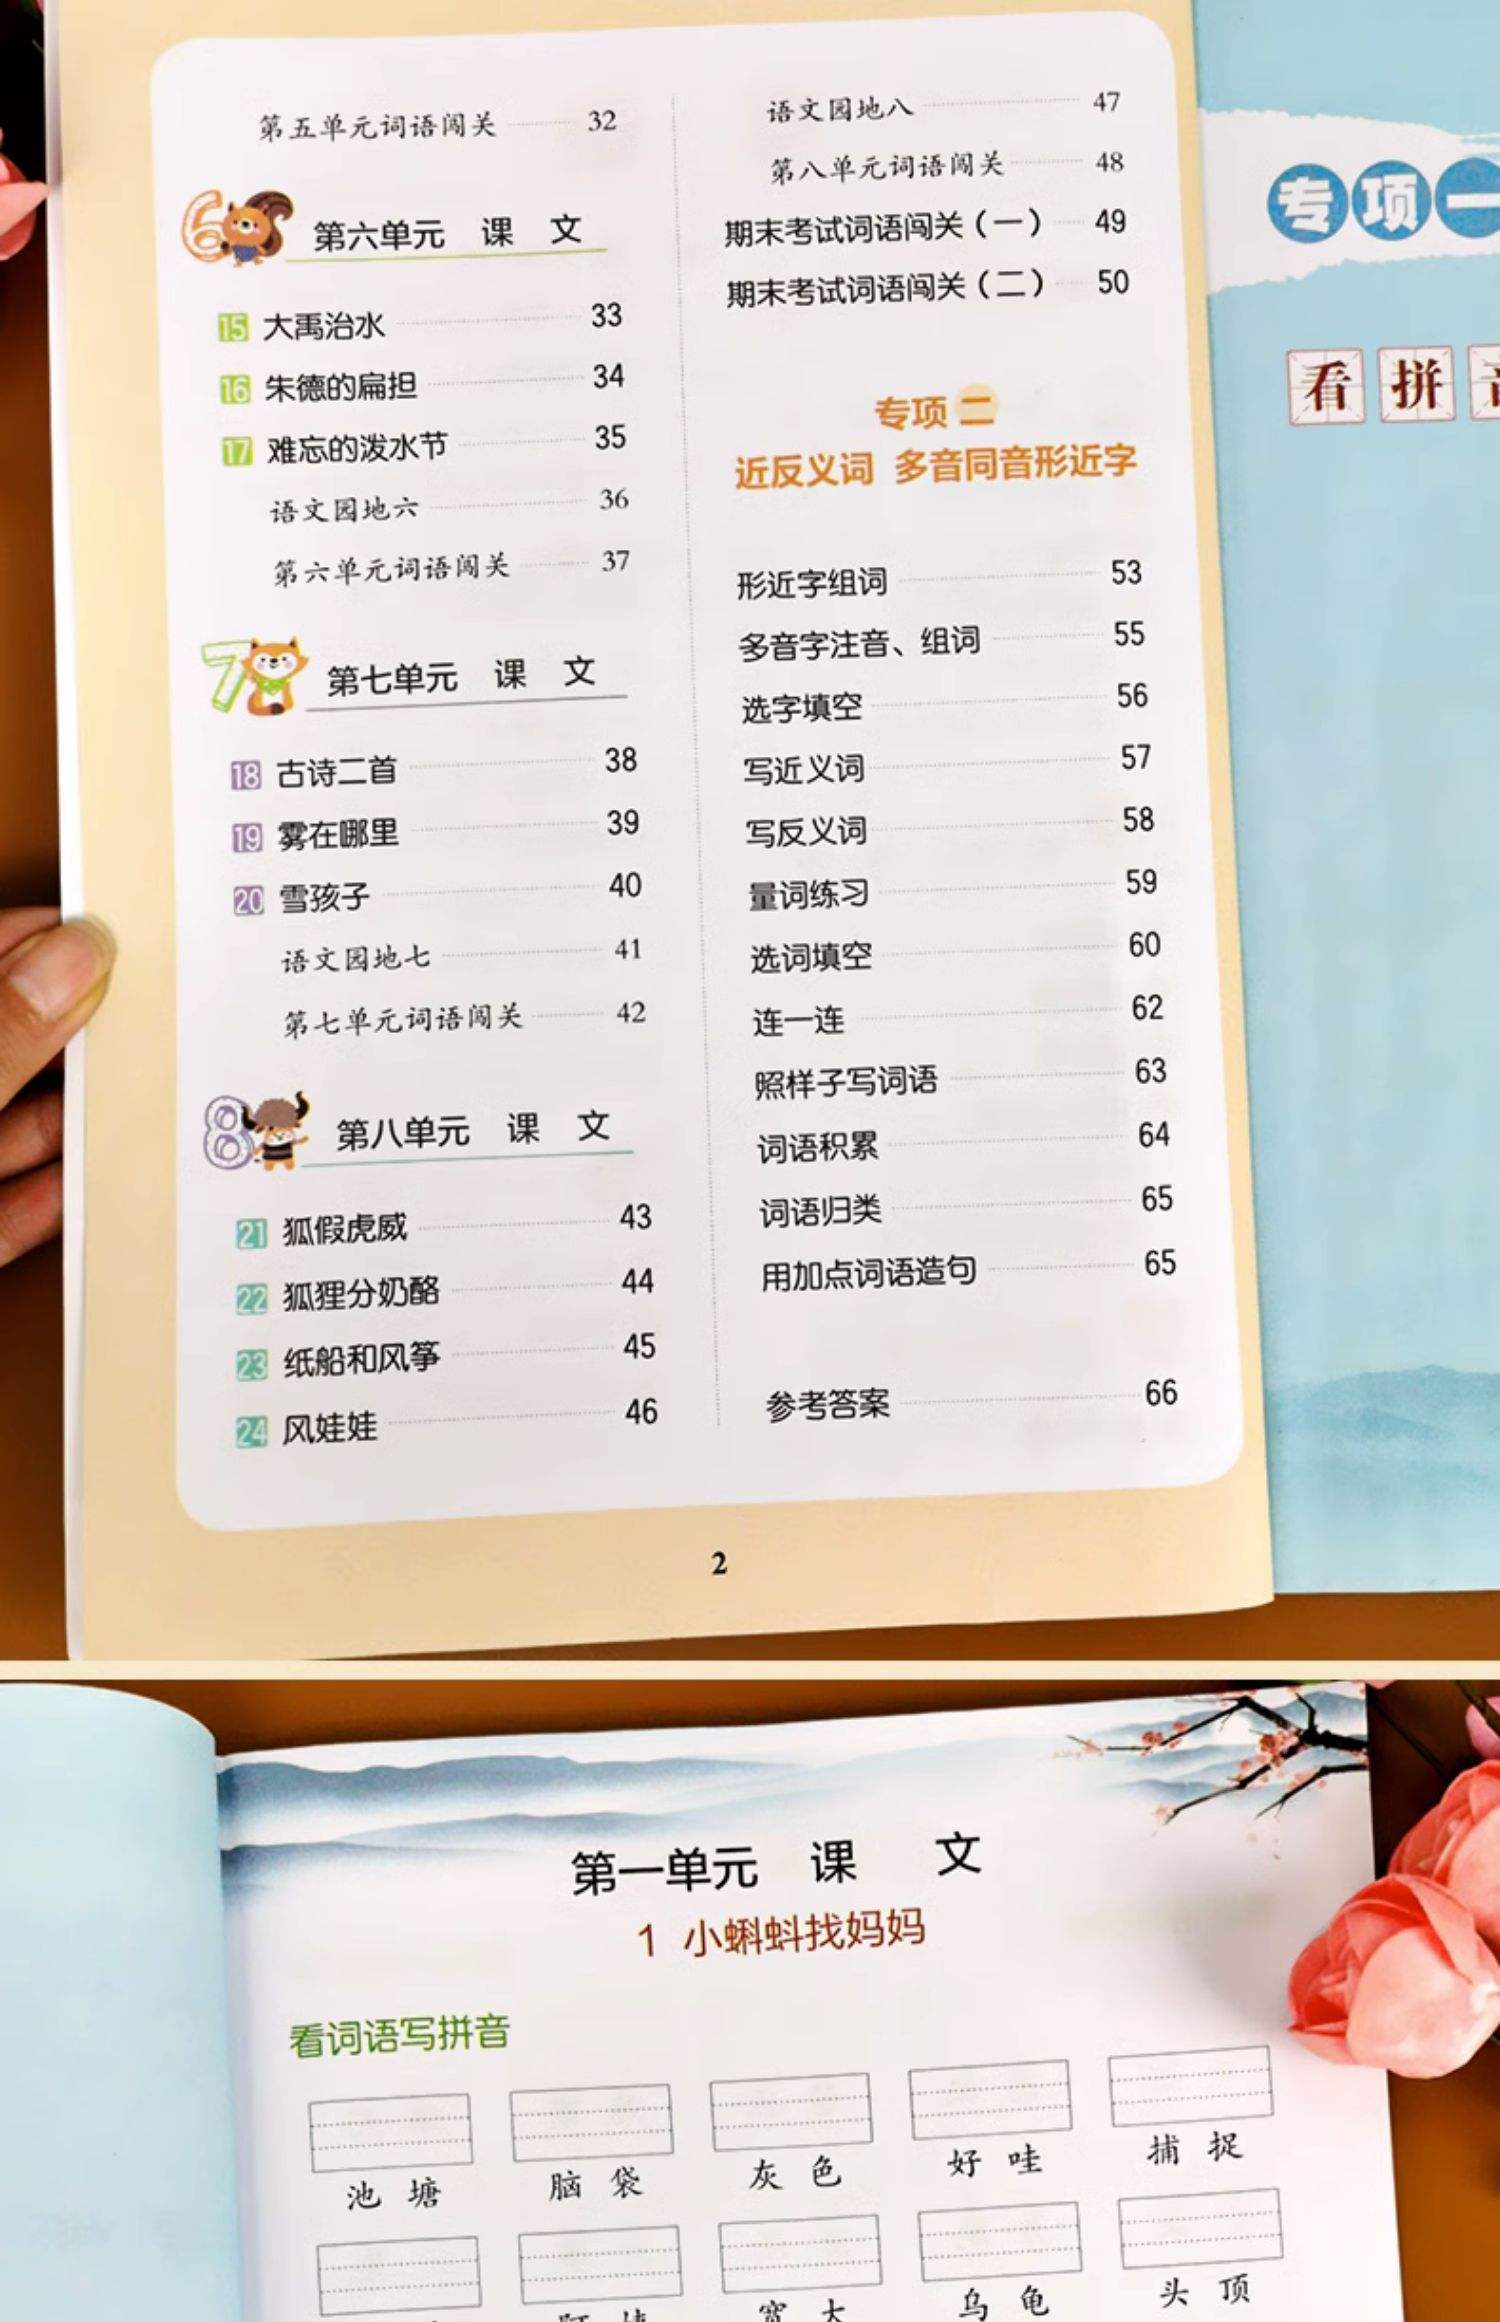 第五单元词语闯关 32
6 第六单元 课 文
15 大禹治水 33
16 朱德的扁担 34
17 难忘的泼水节 35
语文园地六 36
第六单元词语闯关 37
7 第七单元 课 文
18 古诗二首 38
19 雾在哪里 39
20 雪孩子 40
语文园地七 41
第七单元词语闯关 42
8 第八单元 课 文
21 狐假虎威 43
22 狐狸分奶酪 44
23 纸船和风筝 45
24 风娃娃 46
语文园地八 47
第八单元词语闯关 48
期末考试词语闯关（一） 49
期末考试词语闯关（二） 50
专项 二
近反义词 多音同音形近字
形近字组词 53
多音字注音、组词 55
选字填空 56
写近义词 57
写反义词 58
量词练习 59
选词填空 60
连一连 62
照样子写词语 63
词语积累 64
词语归类 65
用加点词语造句 65
参考答案 66
2
专项一
看拼
第一单元 课 文
1 小蝌蚪找妈妈
看词语写拼音
池塘 脑袋 灰色 好哇 捕捉
宽大 乌龟 头顶